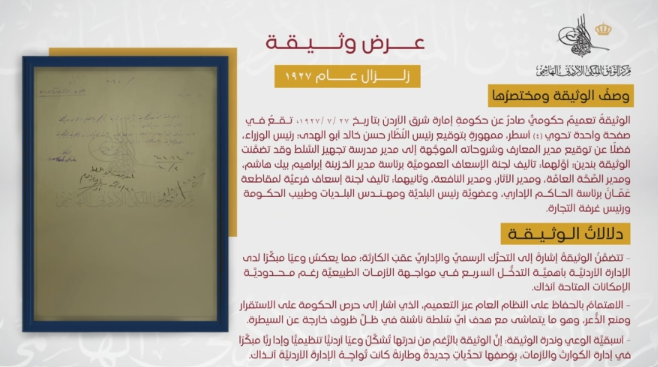 مركز التوثيق الملكي الأردني الهاشمي
عرض وثيقة
زلزال عام ١٩٢٧
وصفُ الوثيقة ومختصرُها
الوثيقةُ تعميمٌ حكوميٌّ صادرٌ عن حكومةِ إمارةِ شرق الأردن بتاريخ ٢٧ /٧ /١٩٢٧، تـقـعُ في
صفحة واحدة تحوي (٤) أسطر، ممهورة بتوقيع رئيس النُّظّار حسن خالد أبو الهدى؛ رئيس الوزراء،
فضلًا عن توقيع مدير المعارف وشروحاته الموجّهة إلى مدير مدرسة تجهيز السّلط وقد تضمّنت
الوثيقة بندين؛ أوّلهما، تأليف لجنة الإسعاف العموميّة برئاسة مدير الخزينة إبراهيم بيك هاشم،
ومدير الصّحّة العامّة، ومدير الآثار، ومدير النافعة، وثانيهما، تأليف لجنة إسعاف فرعيّة لمقاطعة
عَمّان برئاسة الحـاكـم الإداري، وعضويّة رئيس البلديّة ومهـنـدس البلديات وطبيب الحكومة
ورئيس غرفة التجارة.
دلالاتُ الـوثـيـقـة
- تتضمّنُ الوثيقةُ إشارةً إلى التحرُّك الرسميِّ والإداريِّ عقبَ الكارثة؛ مما يعكسُ وعيًا مبكّرًا لدى
الإدارة الأردنيّة بأهميّة التدخُّل السـريـع فـي مـواجـهـة الأزمـات الطبيعيّة رغـم مـحـدوديّـة
الإمكانات المتاحة آنذاك.
- الاهتمامُ بالحفاظ على النظام العام عبرَ التعميم، الذي أشار إلى حرص الحكومة على الاستقرار
ومنع الذُّعر، وهو ما يتماشى مع هدف أيِّ سُلطة ناشئة في ظلِّ ظروف خارجة عن السيطرة.
- أسبقيّة الوعي وندرة الوثيقة: إنَّ الوثيقة بالرّغم من ندرتها تُشكِّلُ وعيًا أردنيًّا تنظيميًّا وإداريًّا مبكّرًا
في إدارة الكوارث والأزمات، بوصفها تحدِّياتٍ جديدةً وطارئةً كانت تُواجِهُ الإدارة الأردنيّة آنـذاك.